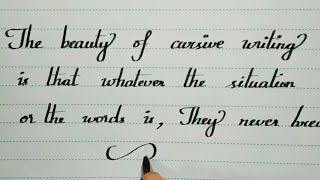 The beauty of cursive writing
is that whatever the situation
or the words is, They never brea